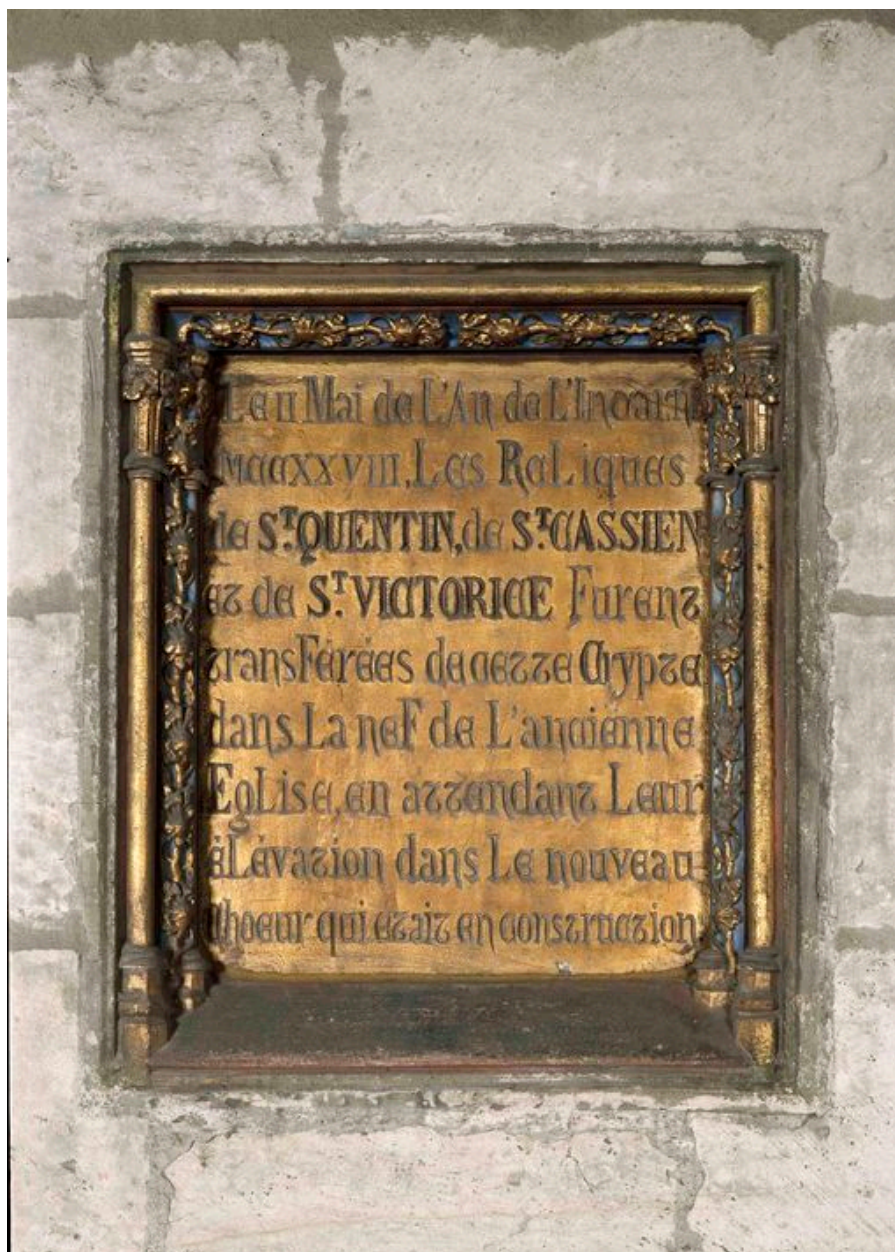 Le II Mai de L'An de L'Incarn
MCCXXVIII, Les ReLiques
de ST. QUENTIN, de ST. CASSIEN
et de ST. VICTORICE Furent
transFérées de cette Crypte
dans La neF de L'ancienne
EgLise, en attendant Leur
éLévation dans Le nouveau
Choeur qui etait en construction